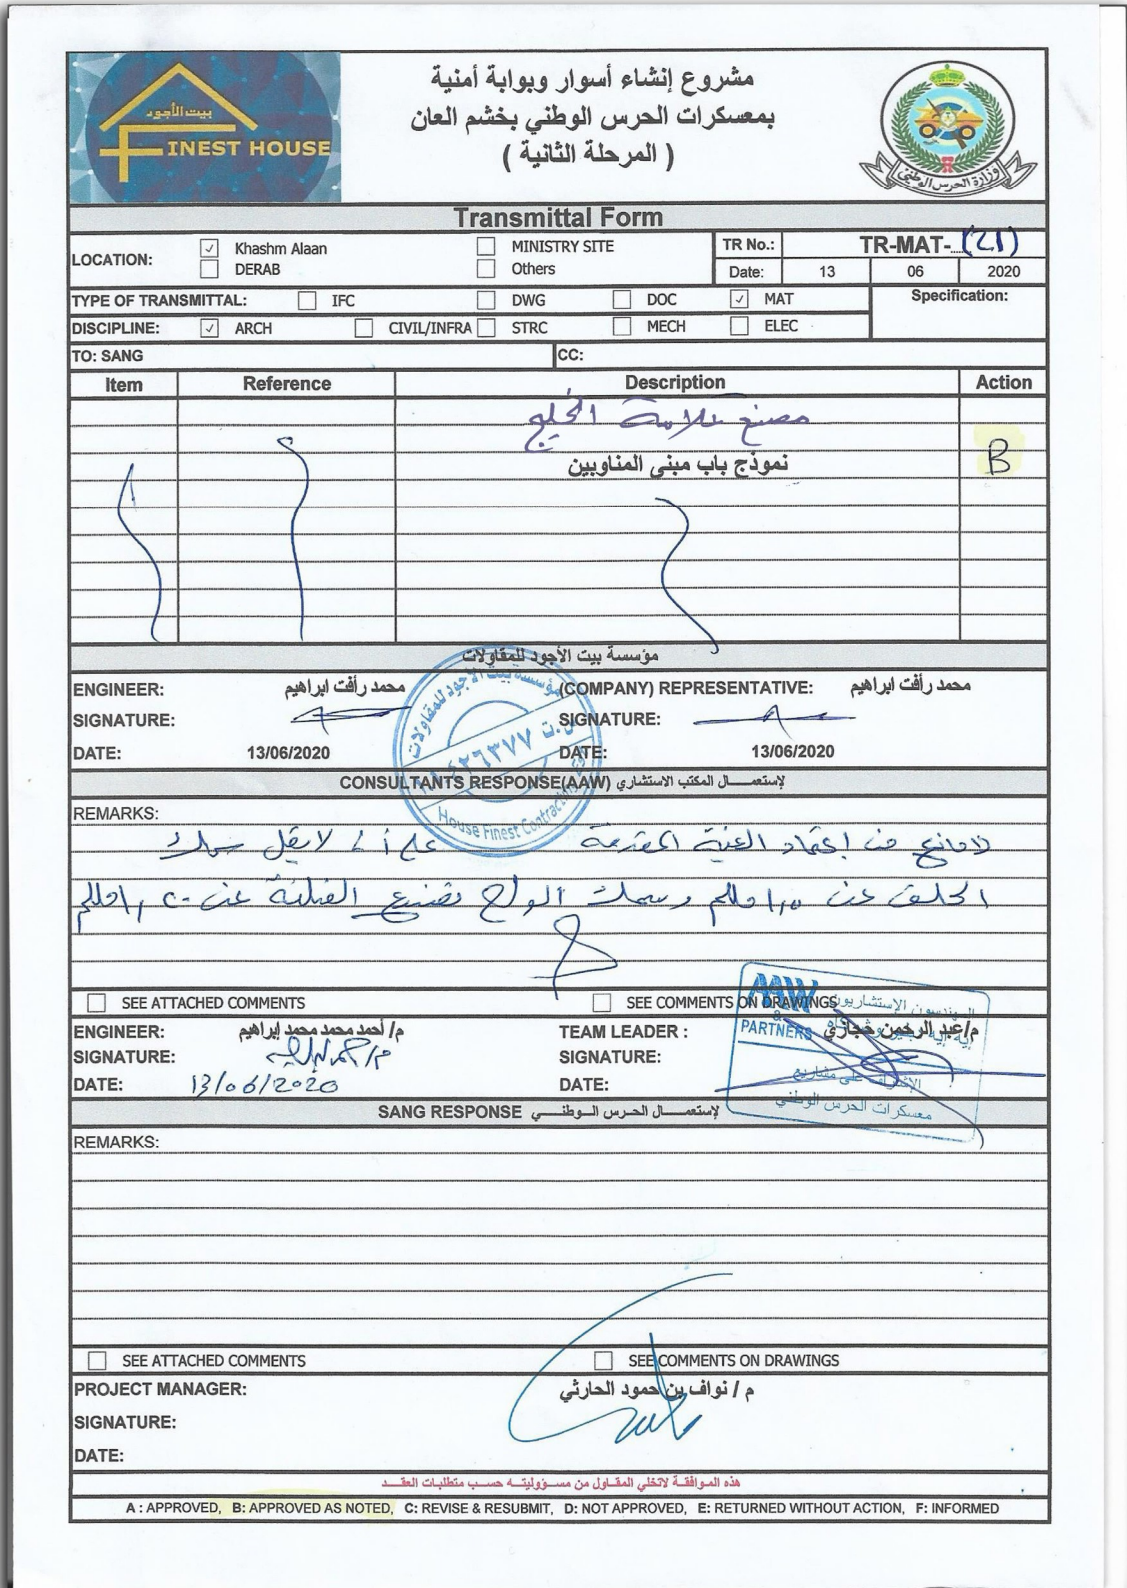 بيت الأجود
FINEST HOUSE
مشروع إنشاء أسوار وبوابة أمنية
بمعسكرات الحرس الوطني بخشم العان
( المرحلة الثانية )
وزارة الحرس الوطني
Transmittal Form
LOCATION: ✓ Khashm Alaan MINISTRY SITE TR No.: TR-MAT-(21)
DERAB Others Date: 13 06 2020
TYPE OF TRANSMITTAL: IFC DWG DOC ✓ MAT Specification:
DISCIPLINE: ✓ ARCH CIVIL/INFRA STRC MECH ELEC
TO: SANG CC:
Item Reference Description Action
مصنع علامة الخليج
نموذج باب مبنى المناوبين B
مؤسسة بيت الأجود للمقاولات
ENGINEER: محمد رأفت ابراهيم (COMPANY) REPRESENTATIVE: محمد رأفت ابراهيم
SIGNATURE: SIGNATURE:
DATE: 13/06/2020 DATE: 13/06/2020
مؤسسة بيت الأجود للمقاولات
House Finest Contracting
CONSULTANTS RESPONSE(AAW) لإستعمـــال المكتب الاستشاري
REMARKS:
لا مانع من إعتماد العينة المقدمة على أن لا يقل سمك
الحلق عن 1,5 مللم وسمك الواح تصنيع الضلفة عن 1,20 مللم
SEE ATTACHED COMMENTS SEE COMMENTS ON DRAWINGS
ENGINEER: م/ أحمد محمد محمد إبراهيم TEAM LEADER : م/عبد الرحمن حجازي
SIGNATURE: SIGNATURE:
DATE: 13/06/2020 DATE:
AAW & PARTNERS
المهندسون الإستشاريون
الإشراف على مشاريع
معسكرات الحرس الوطني
SANG RESPONSE لإستعمــــال الحـرس الـوطنــــي
REMARKS:
SEE ATTACHED COMMENTS SEE COMMENTS ON DRAWINGS
PROJECT MANAGER: م / نواف بن حمود الحارثي
SIGNATURE:
DATE:
هذه المـوافقـة لاتخلي المقـاول من مسـؤوليتـه حسـب متطلبـات العقـد
A : APPROVED, B: APPROVED AS NOTED, C: REVISE & RESUBMIT, D: NOT APPROVED, E: RETURNED WITHOUT ACTION, F: INFORMED